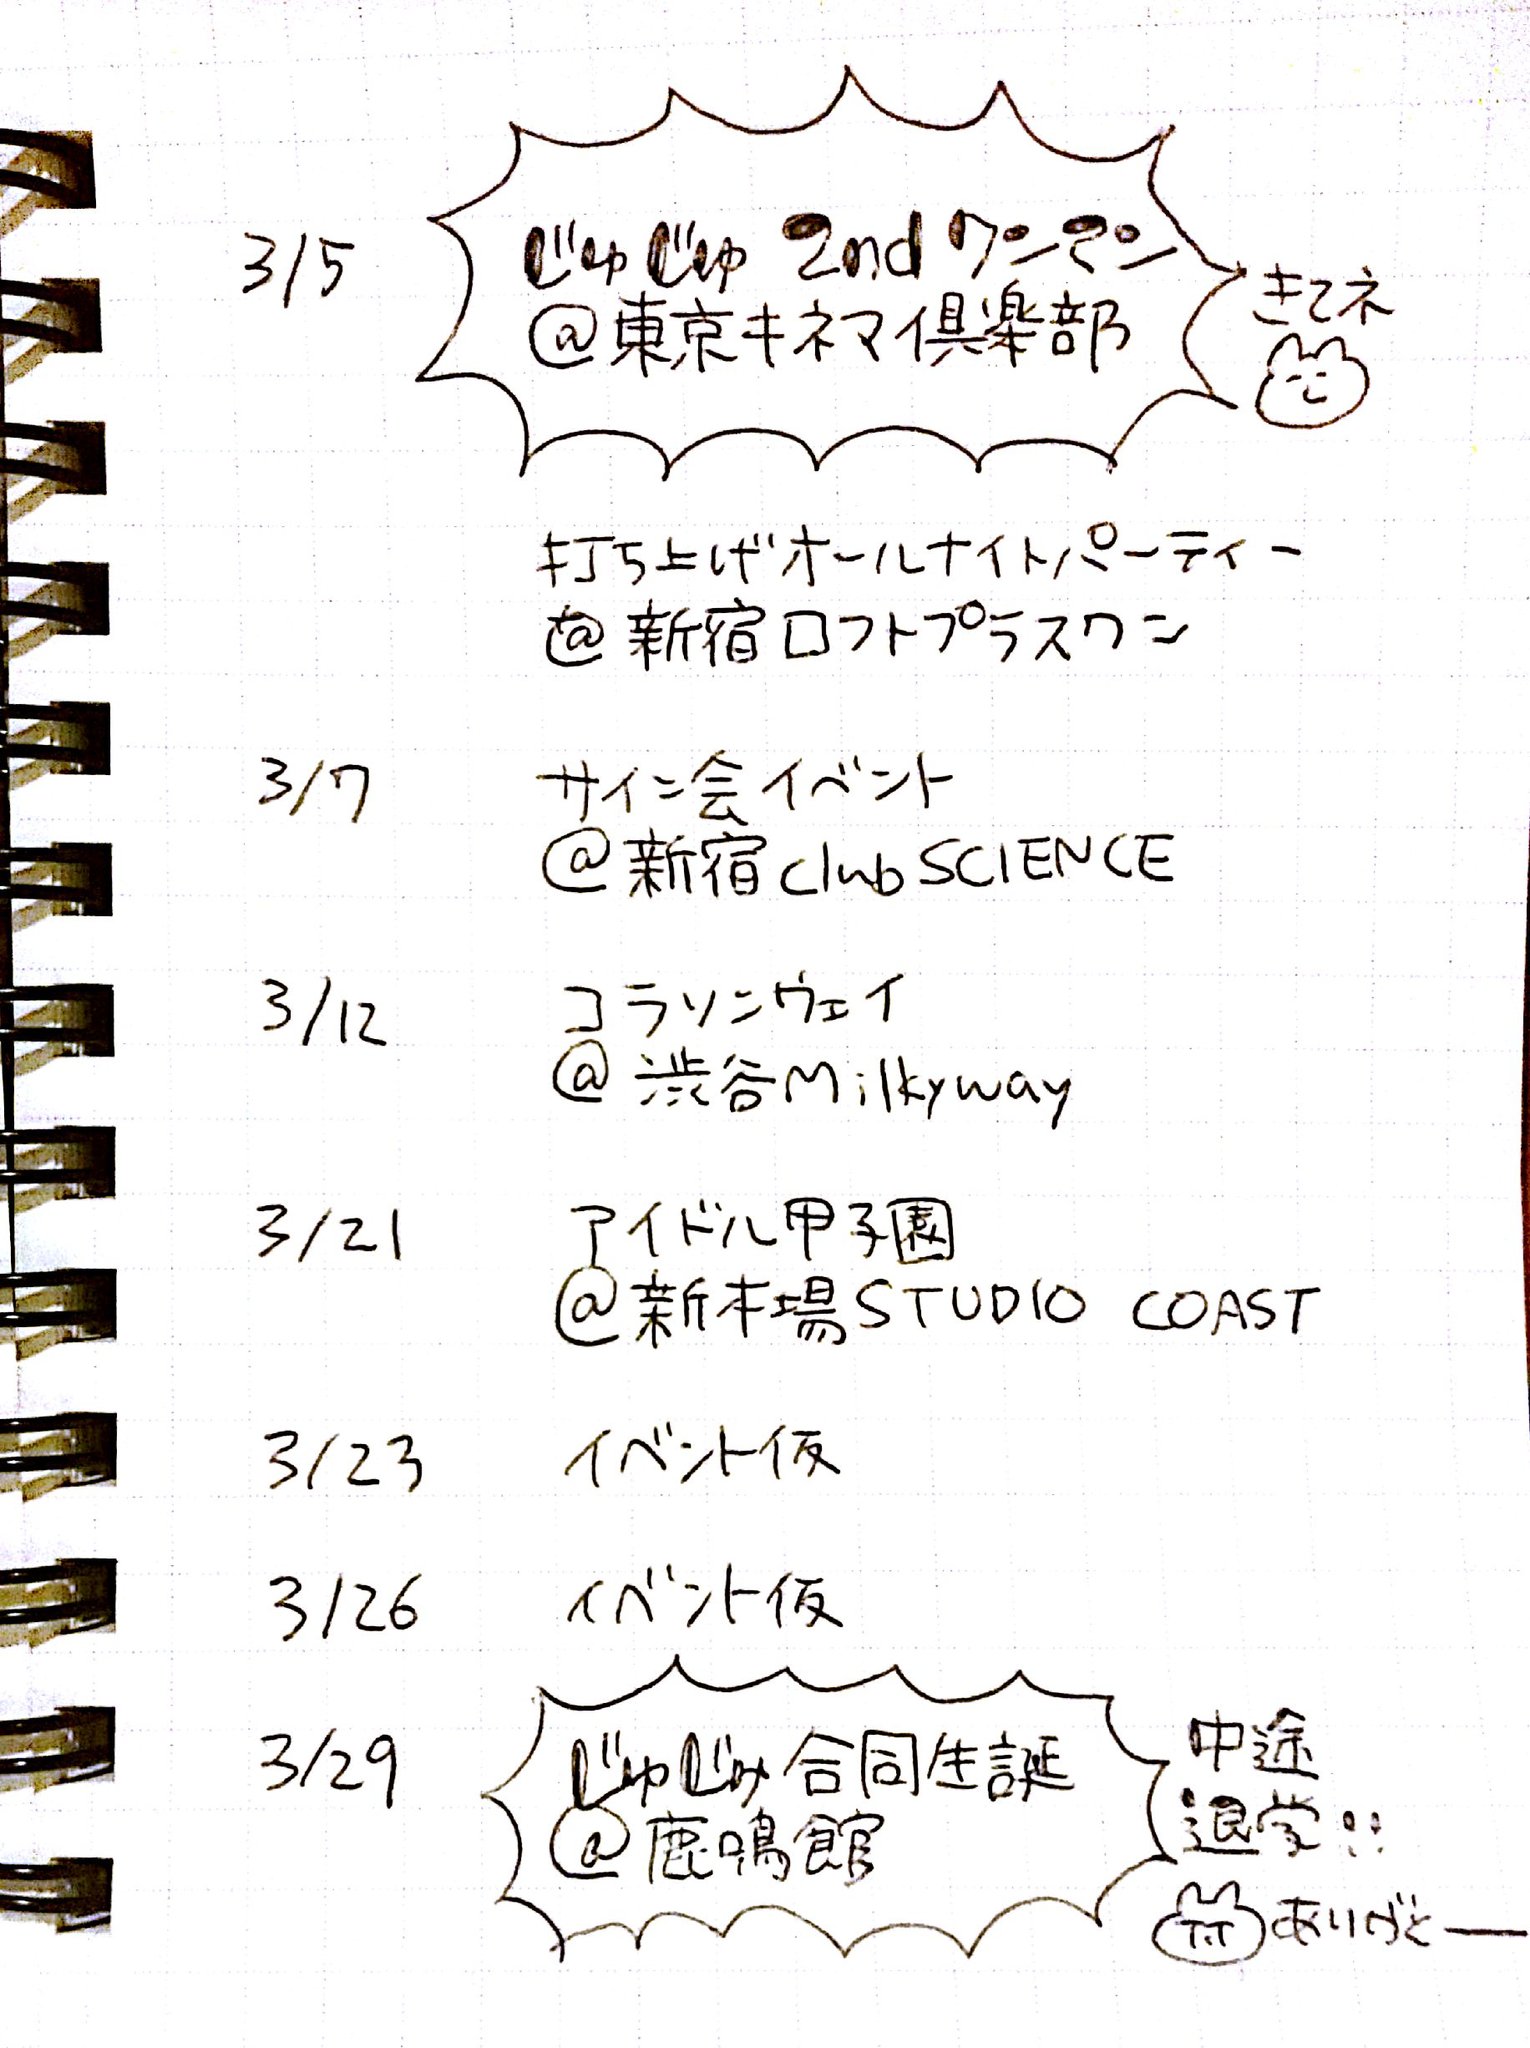 3/5
じゅじゅ 2nd ワンマン
@東京キネマ倶楽部
きてネ
打ち上げオールナイトパーティー
@新宿ロフトプラスワン
3/7
サイン会イベント
@新宿clubSCIENCE
3/12
コラソンウェイ
@渋谷Milkyway
3/21
アイドル甲子園
@新木場STUDIO COAST
3/23
イベント仮
3/26
イベント仮
3/29
じゅじゅ合同生誕
@鹿鳴館
中途
退学!!
ありがとー